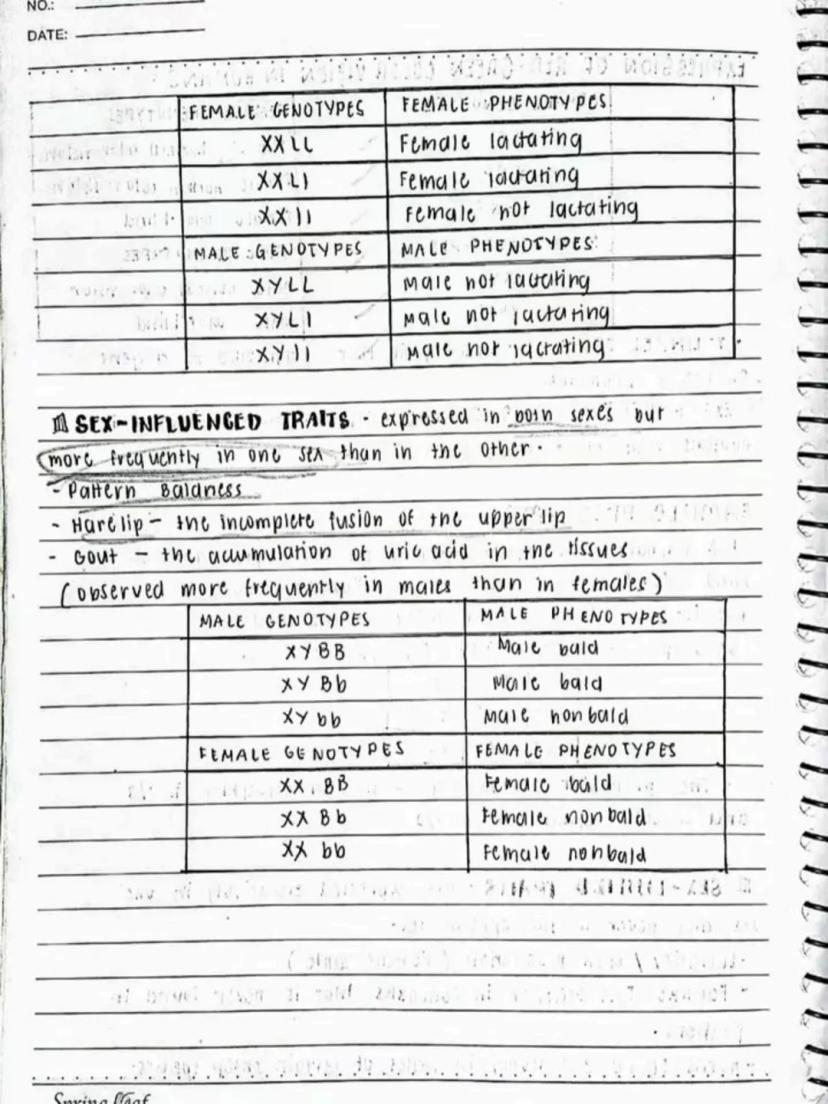 NO.:
DATE:
FEMALE GENOTYPES FEMALE PHENOTYPES
XXLL Female lactating
XXLl Female lactating
XXll Female not lactating
MALE GENOTYPES MALE PHENOTYPES
XYLL Male not lactating
XYLl Male not lactating
XYll Male not lactating
SEX-INFLUENCED TRAITS - expressed in both sexes but
more frequently in one sex than in the other.
- Pattern Baldness
- Harelip - the incomplete fusion of the upper lip
- Gout - the acumulation of uric acid in the tissues
(observed more frequently in males than in females)
MALE GENOTYPES MALE PHENOTYPES
XYBB Male bald
XYBb Male bald
XYbb Male nonbald
FEMALE GENOTYPES FEMALE PHENOTYPES
XXBB Female bald
XXBb Female nonbald
XXbb Female nonbald